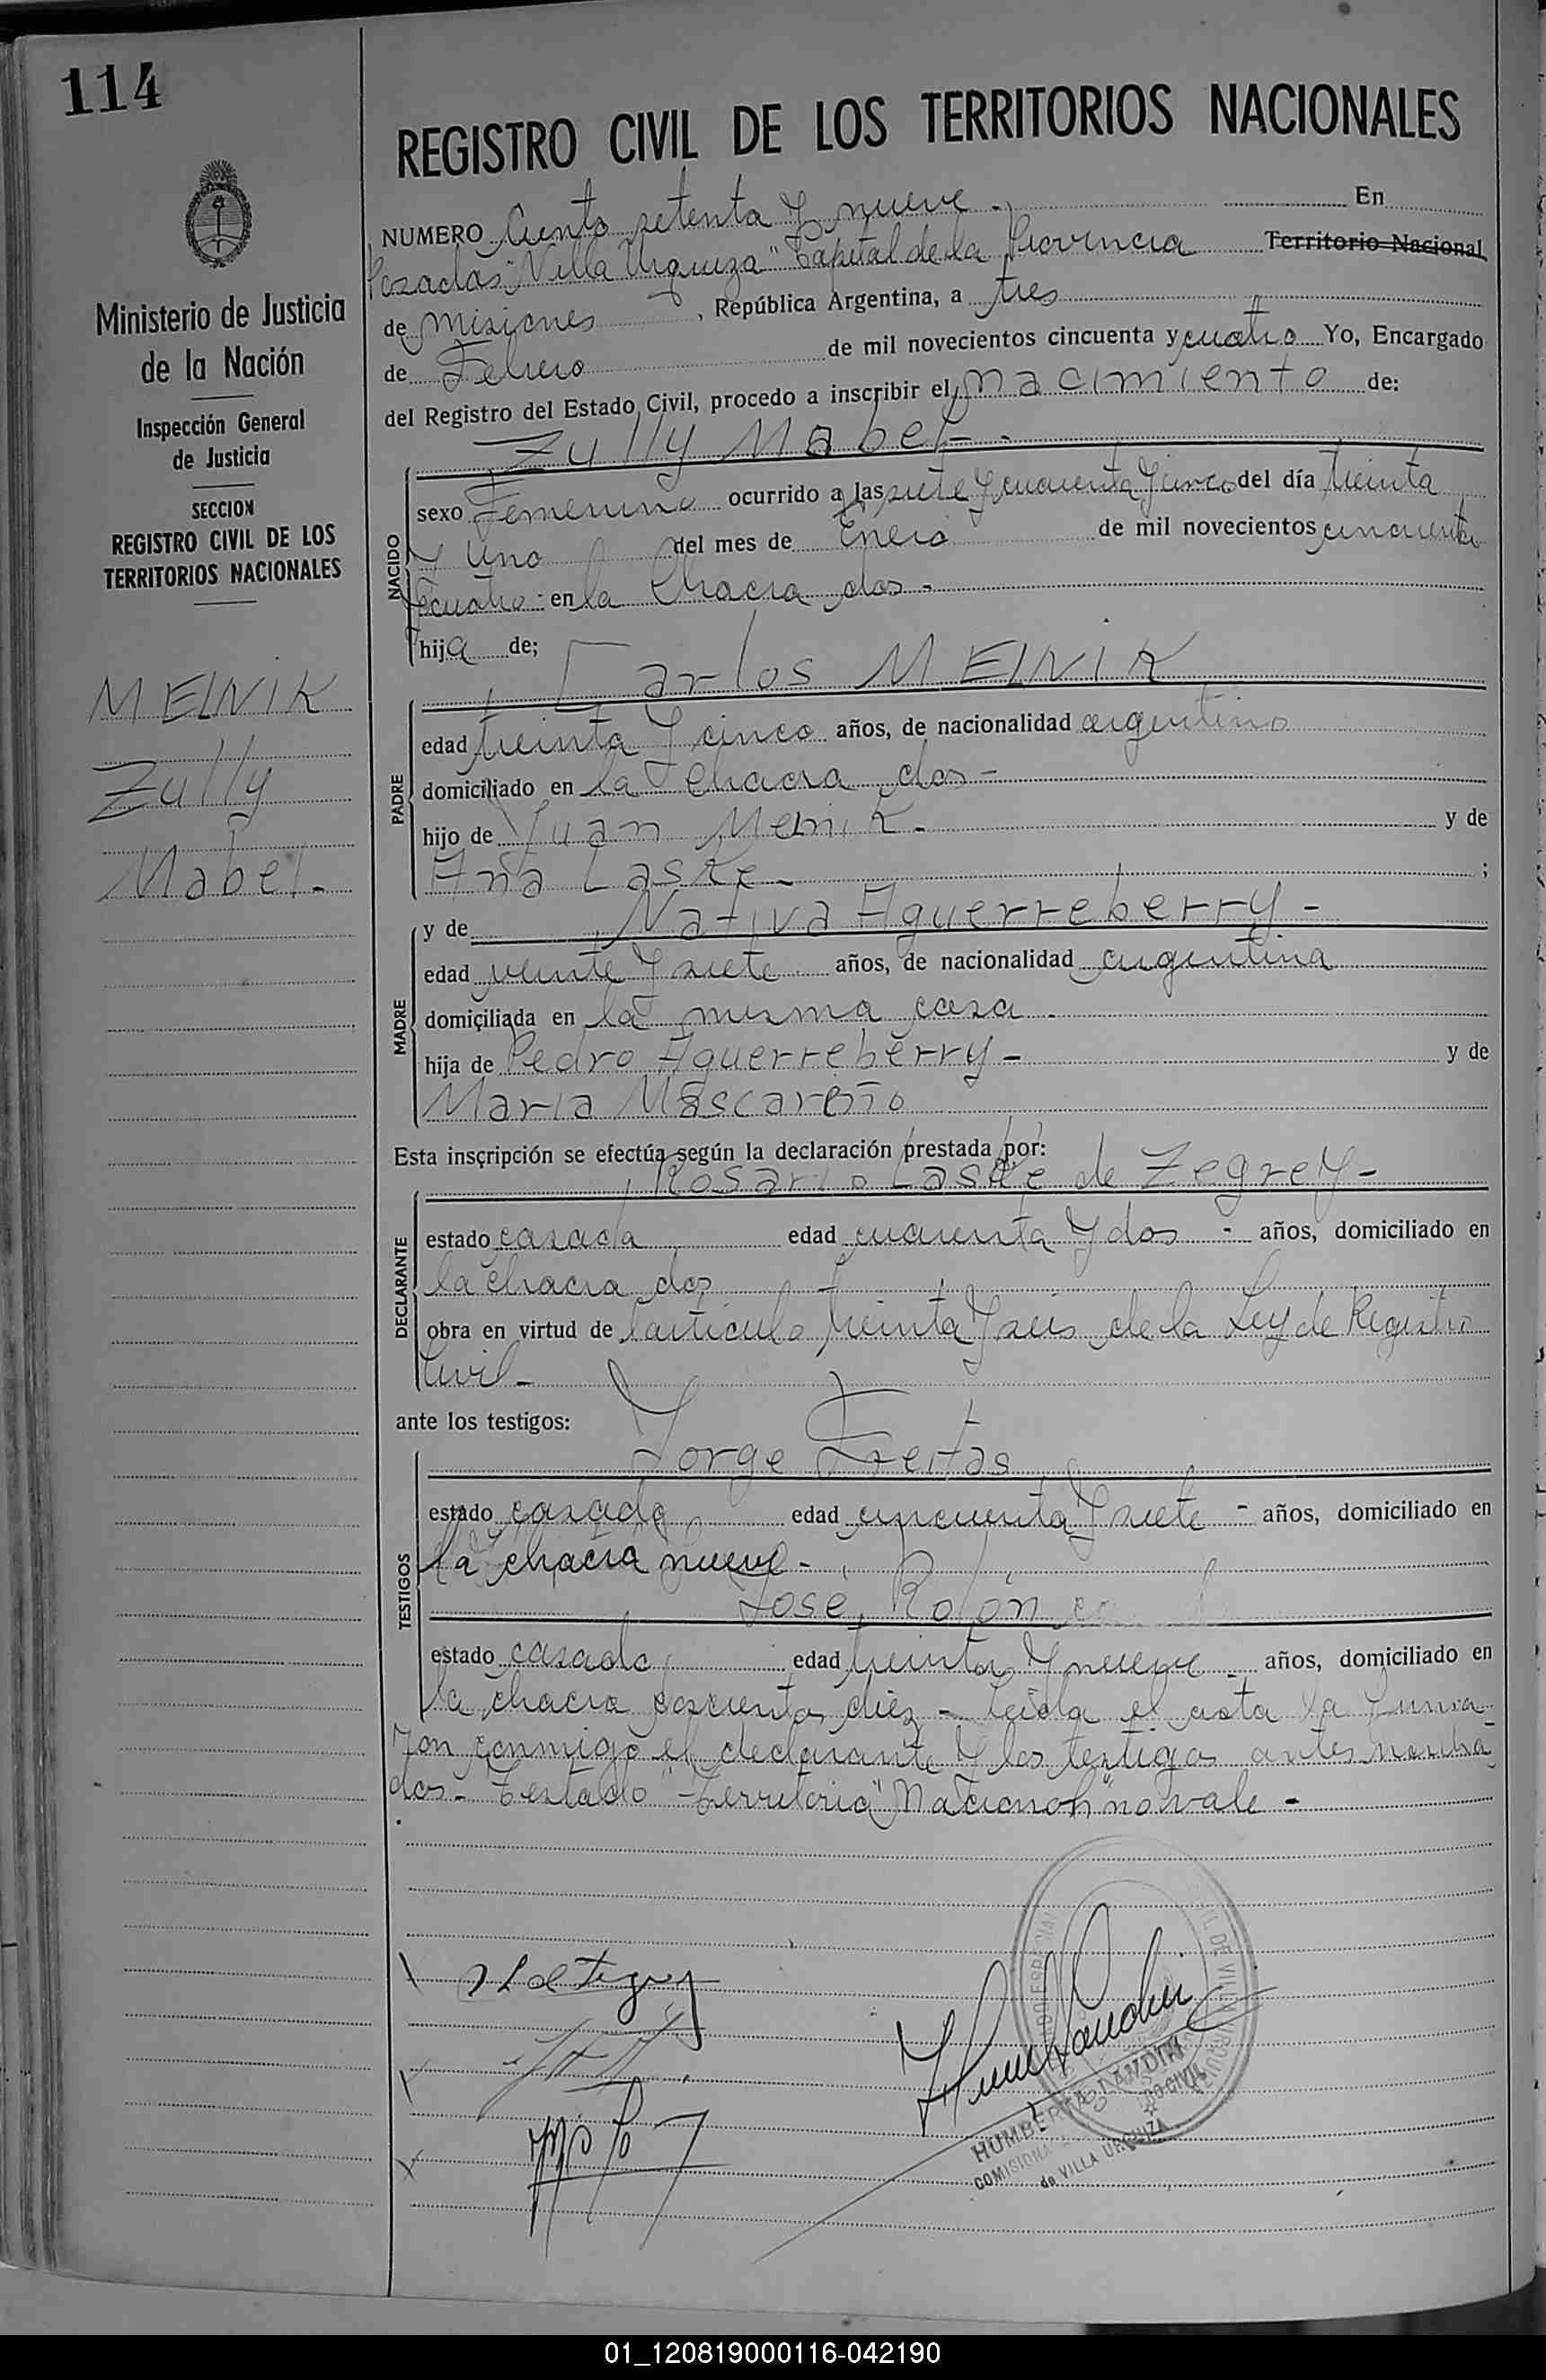 114
REGISTRO CIVIL DE LOS TERRITORIOS NACIONALES
Ministerio de Justicia
de la Nación
Inspección General
de Justicia
SECCION
REGISTRO CIVIL DE LOS
TERRITORIOS NACIONALES
MELNIK
Zully
Mabel.-
NUMERO Ciento setenta y nueve.- En
Posadas "Villa Urquiza" Capital de la Provincia Territorio Nacional
de Misiones, República Argentina, a tres
de Febrero de mil novecientos cincuenta y cuatro Yo, Encargado
del Registro del Estado Civil, procedo a inscribir el nacimiento de:
Zully Mabel-.
NACIDO
sexo Femenino ocurrido a las siete y cuarenta y cinco del día treinta
y uno del mes de Enero de mil novecientos cincuenta
y cuatro - en la Chacra dos -
hija de;
Carlos MELNIK
PADRE
edad treinta y cinco años, de nacionalidad argentino
domiciliado en la chacra dos -
hijo de Juan Melnik - y de
Ana Laske - ;
MADRE
y de Nativa Aguerreberry -
edad veinte y siete años, de nacionalidad argentina
domiciliada en la misma casa -
hija de Pedro Aguerreberry - y de
Maria Mascareño
Esta inscripción se efectúa según la declaración prestada por:
Rosario Laske de Zegrey -
DECLARANTE
estado casada edad cuarenta y dos - años, domiciliado en
la chacra dos
obra en virtud de l'articulo treinta y seis de la Ley de Registro
Civil -
ante los testigos:
Jorge Freitas
TESTIGOS
estado casado edad cincuenta y siete - años, domiciliado en
la chacra nueve -
José Rolón
estado casado edad treinta y nueve - años, domiciliado en
la chacra doscientos diez - Leida el acta la firma
ron conmigo el declarante y los testigos antes nombra
dos - Testado "Territorio" Nacional" no vale -
HUMBERTA LANDIN
de VILLA URQUIZA
01_120819000116-042190